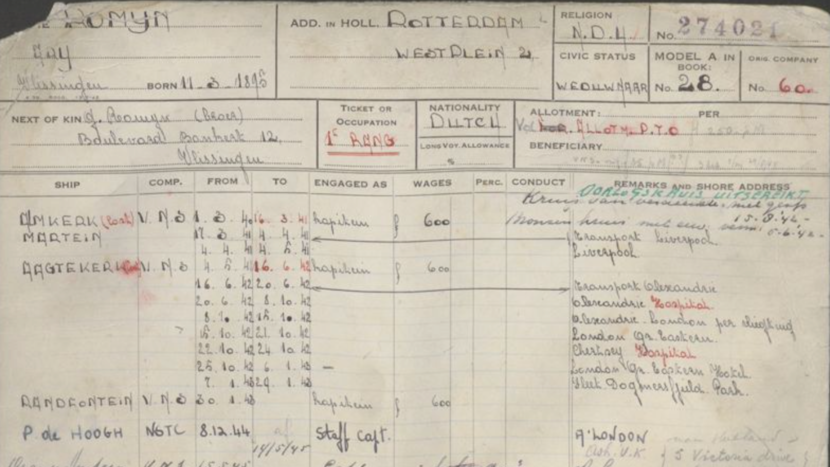 ROMYN
ADD. IN HOLL. ROTTERDAM
RELIGION
N.D.H.
No. 274021
WESTPLEIN 2
CIVIC STATUS
WEDUWNAAR
MODEL A IN BOOK:
No. 28.
ORIG. COMPANY
No. 60.
Vlissingen BORN 11-3-1895
NEXT OF KIN J. Romyn (Broer)
Boulevard Bankert 12,
Vlissingen
TICKET OR OCCUPATION
1e RANG
NATIONALITY
DUTCH
LONDON VOY. ALLOWANCE
ALLOTMENT: PER
ALLOTM. P.T.O
BENEFICIARY
SHIP COMP. FROM TO ENGAGED AS WAGES PERC. CONDUCT REMARKS AND SHORE ADDRESS
OORLOGSKRUIS UITGEREIKT
Kruis van verdienste met gesp
15.8.42-
AMKERK (Lost) V.N.S 1.3.41 16.3.41 kapitein f 600
Bronzen kruis met eerv. verm. 5.6.42-
MARTEIN 17.3.41 4.4.41 Transport Liverpool
4.4.41 4.5.41 Liverpool
AAGTEKERK V.N.S 4.5.41 16.6.42 kapitein f 600
16.6.42 20.6.42 Transport Alexandrie
20.6.42 8.10.42 Alexandrie Hospital
8.10.42 15.10.42 Alexandrie London per vliegtuig
15.10.42 21.10.42 London Gr. Eastern.
22.10.42 24.10.42 Chertsey Hospital
25.10.42 6.1.43 — London Gr. Eastern Hotel
7.1.43 29.1.43 Fleet Dogmersfield Park.
RANDFONTEIN V.N.S 30.1.43 kapitein f 600
P. de HOOGH NGTC 8.12.44 Staff Capt. A'LONDON
14/5/45 5 Victoria drive